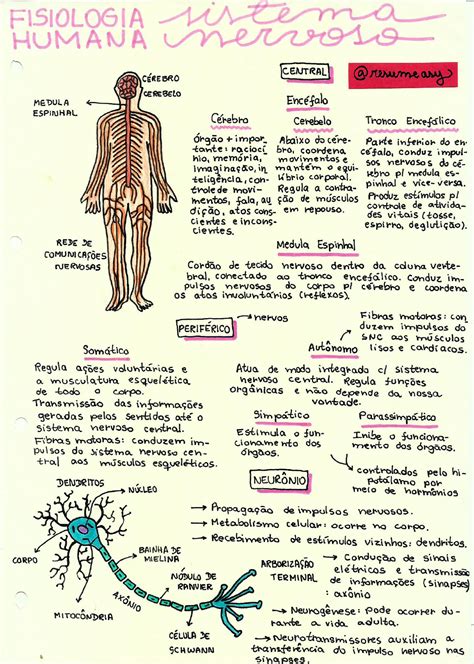 FISIOLOGIA
HUMANA
sistema
nervoso
CÉREBRO
CEREBELO
MEDULA
ESPINHAL
REDE DE
COMUNICAÇÕES
NERVOSAS
CENTRAL
@resumeasy
Encéfalo
Cérebro
Órgão + impor
tante: raciocí
nio, memória,
imaginação, in
teligência, con-
trole de movi-
mentos, fala, au
dição, atos cons
cientes e incons-
cientes.
Cerebelo
Abaixo do cére-
bro, coordena
movimentos e
mantém o equi
líbrio corporal.
Regula a contra-
ção de músculos
em repouso.
Tronco Encefálico
Parte inferior do en-
céfalo, conduz impul-
sos nervosos do cé-
rebro p/ medula es-
pinhal e vice-versa.
Produz estímulos p/
controle de ativida-
des vitais (tosse,
espirro, deglutição).
Medula Espinhal
Cordão de tecido nervoso dentro da coluna verte-
bral, conectado ao tronco encefálico. Conduz im-
pulsos nervosos do corpo p/ cérebro e coordena
os atos involuntários (reflexos).
PERIFÉRICO
nervos
Somático
Regula ações voluntárias e
a musculatura esquelética
de todo o corpo.
Transmissão das informações
geradas pelos sentidos até o
sistema nervoso central.
Fibras motoras: conduzem im-
pulsos do sistema nervoso cen-
tral aos músculos esqueléticos.
Autônomo
Fibras motoras: con
duzem impulsos do
SNC aos músculos
lisos e cardíacos.
Atua de modo integrado c/ sistema
nervoso central. Regula funções
orgânicas e não depende da nossa
vontade.
Simpático
Estimula o fun-
cionamento dos
órgãos.
Parassimpático
Inibe o funciona-
mento dos órgãos.
controlados pelo hi-
potálamo por
meio de hormônios
NEURÔNIO
DENDRITOS
NÚCLEO
CORPO
BAINHA DE
MIELINA
NÓDULO DE
RANVIER
AXÔNIO
MITOCÔNDRIA
CÉLULA DE
SCHWANN
ARBORIZAÇÃO
TERMINAL
Propagação de impulsos nervosos.
Metabolismo celular: ocorre no corpo.
Recebimento de estímulos vizinhos: dendritos.
Condução de sinais
elétricos e transmissão
de informações (sinapses)
: axônio
Neurogênese: Pode ocorrer du-
rante a vida adulta.
Neurotransmissores auxiliam a
transmissão do impulso nervoso nas
sinapses.